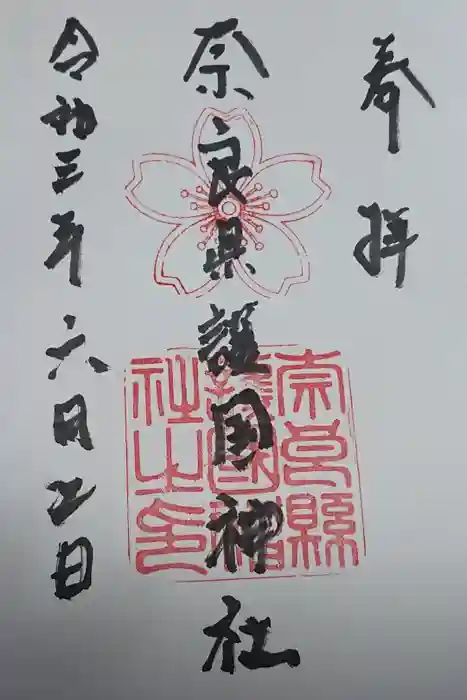 奉拝
奈良県護国神社
令和三年六月五日
奈良縣
護國神
社之印